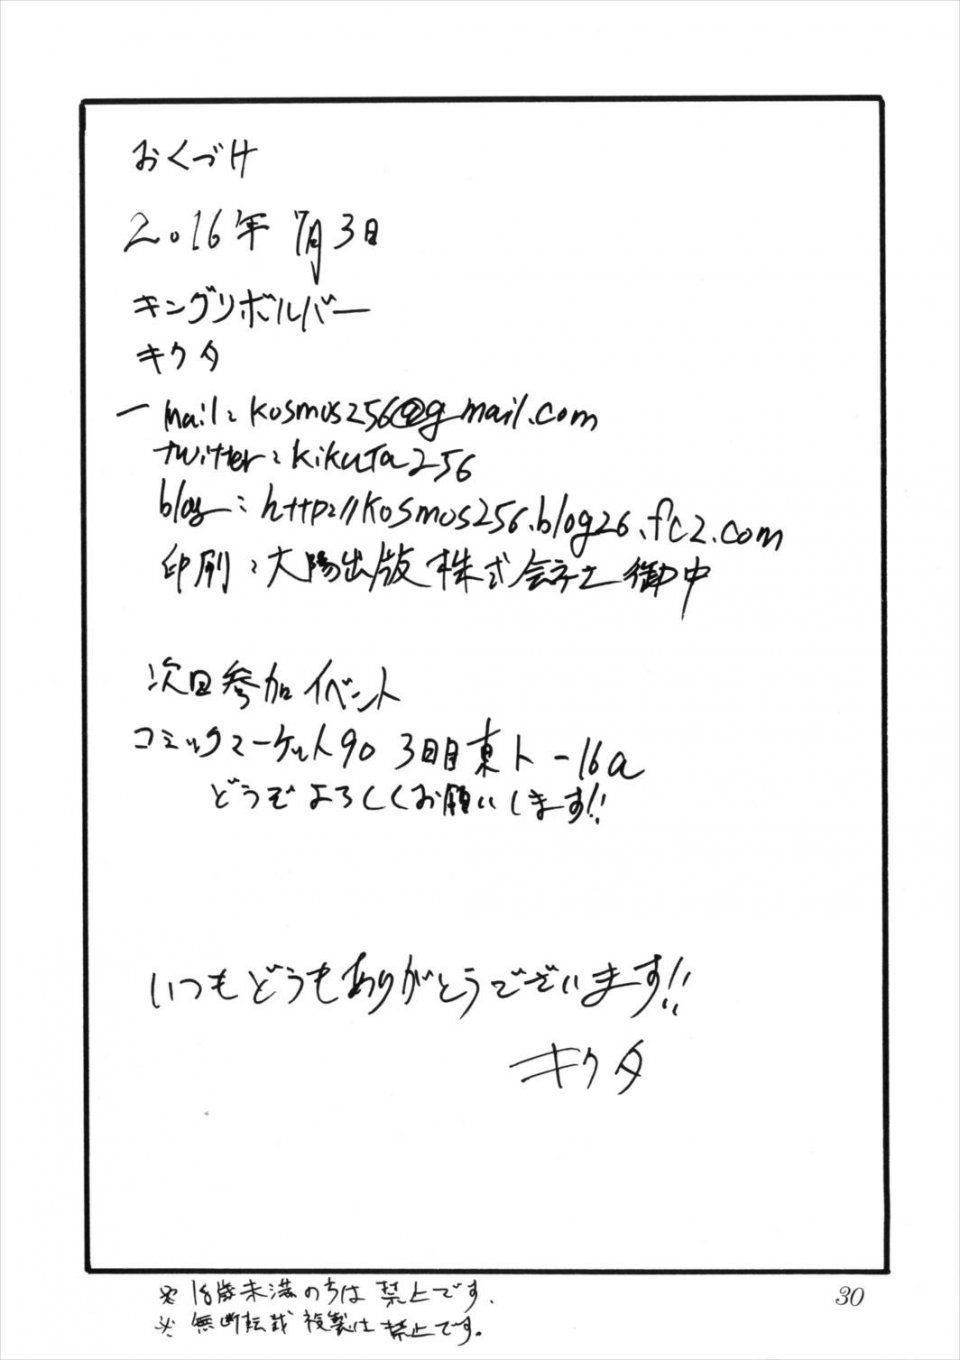 おくづけ
2016年 7月3日
キングリボルバー
キクタ
ー mail：kosmos256@gmail.com
twitter：kikuta256
blog：http://kosmos256.blog26.fc2.com
印刷：大陽出版株式会社 御中
次回参加イベント
コミックマーケット90 3日目東ト-16a
どうぞよろしくお願いします!!
いつもどうもありがとうございます!!
キクタ
※ 18歳未満の方は禁止です.
※ 無断転載 複製は禁止です。
30